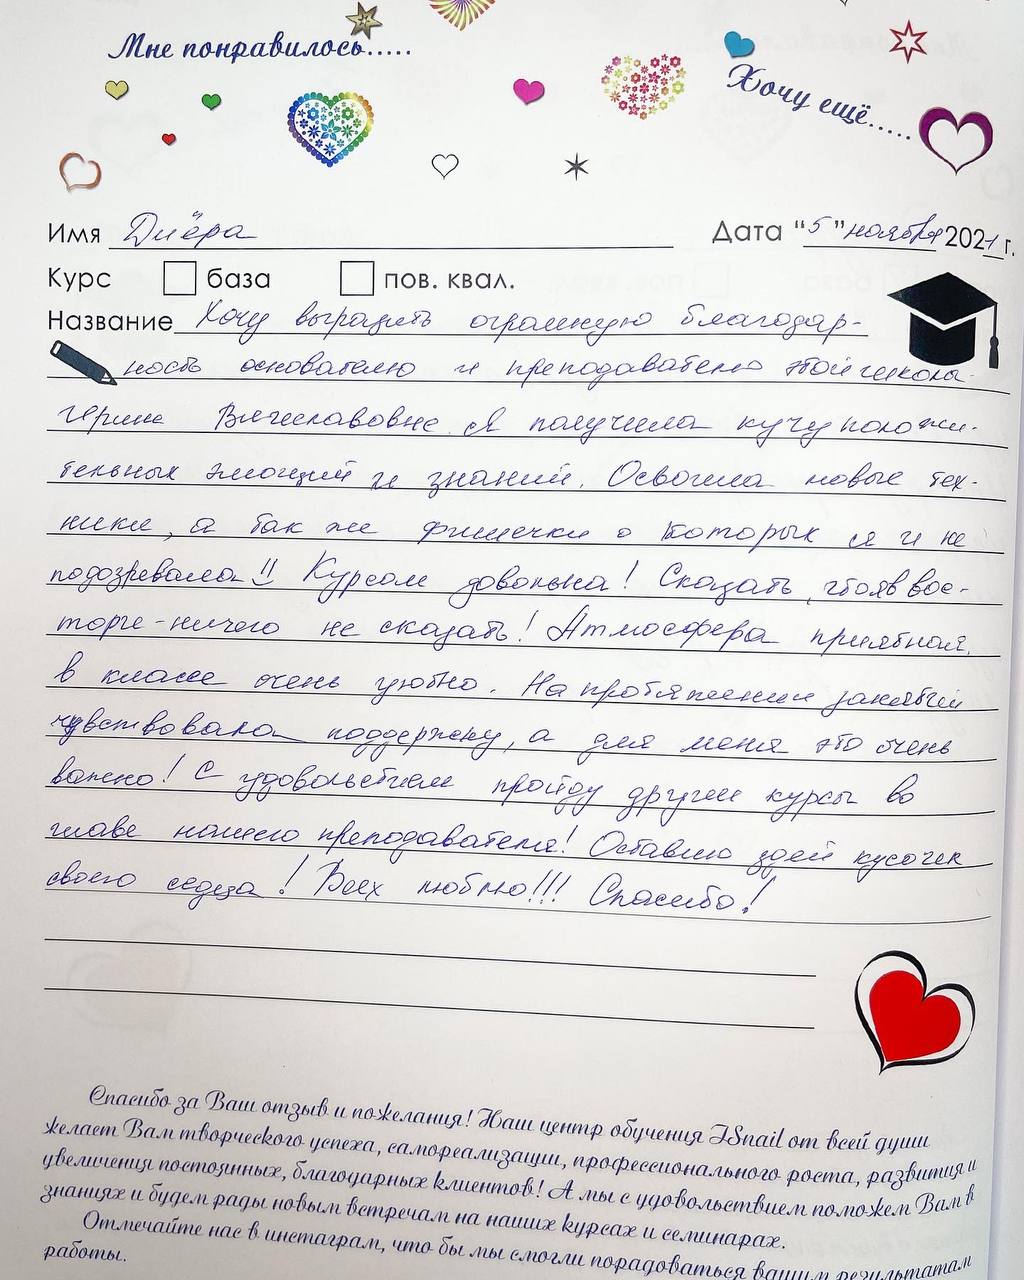 Мне понравилось.....
Хочу ещё.....
Имя Диёра Дата “5” ноября 2021 г.
Курс база пов. квал.
Название Хочу выразить огромную благодар-
ность основателю и преподавателю этой школы-
Вячеславовне. Я получила кучу положи-
тельных эмоций и знаний. Освоила новые тех-
ники, а так же фишечки о которых я и не
подозревала!! Курсом довольна! Сказать, что я в вос-
торге - ничего не сказать! Атмосфера приятная,
в классе очень уютно. На протяжении занятий
чувствовала поддержку, а для меня это очень
важно! С удовольствием пройду другие курсы во
главе нашего преподавателя! Оставлю здесь кусочек
своего седца! Всех люблю!!! Спасибо!
Спасибо за Ваш отзыв и пожелания! Наш центр обучения JSnail от всей души
желает Вам творческого успеха, самореализации, профессионального роста, развития и
увеличения постоянных, благодарных клиентов! А мы с удовольствием поможем Вам в
знаниях и будем рады новым встречам на наших курсах и семинарах.
Отмечайте нас в инстаграм, что бы мы смогли порадоваться вашим результатам
работы.